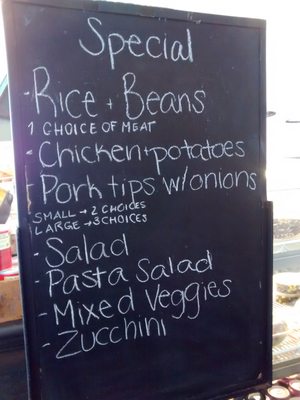 Special
- Rice + Beans
1 CHOICE OF MEAT
- Chicken + potatoes
- Pork tips w/onions
SMALL → 2 CHOICES
LARGE → 3 CHOICES
- Salad
- Pasta Salad
- Mixed Veggies
- Zucchini